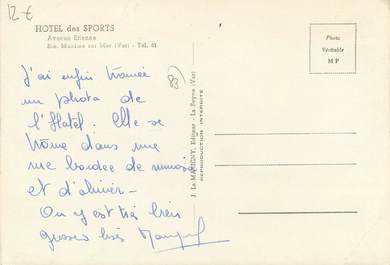 12€
HOTEL des SPORTS
Avenue Etienne
Ste. Maxime sur Mer (Var) - Tél. 61
Photo
Véritable
M P
J'ai enfin trouvée
un photo de
l'Hotel. Elle se
trouve dans une
rue bordée de mimosa
et d'olivier -
On y est très bien
grosses bises
83
J. Le MARIGNY, Editeur - La Seyne (Var)
REPRODUCTION INTERDITE